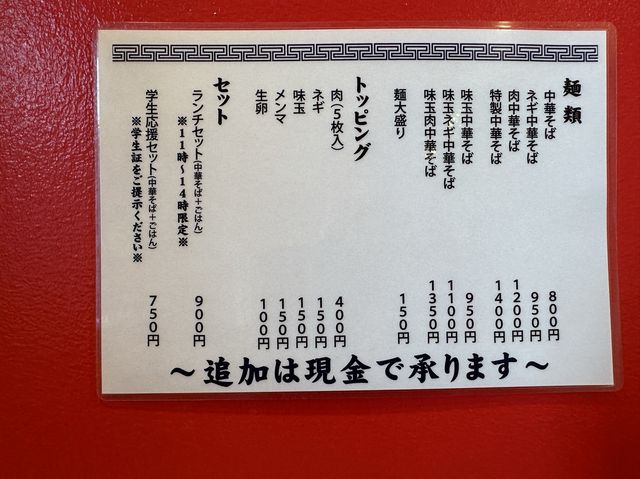 麺類
中華そば 800円
ネギ中華そば 950円
肉中華そば 1200円
特製中華そば 1400円
味玉中華そば 950円
味玉ネギ中華そば 1100円
味玉肉中華そば 1350円
麺大盛り 150円
トッピング
肉(5枚入) 400円
ネギ 150円
味玉 150円
メンマ 150円
生卵 100円
セット
ランチセット(中華そば+ごはん) 900円
※11時～14時限定※
学生応援セット(中華そば+ごはん) 750円
※学生証をご提示ください※
～追加は現金で承ります～